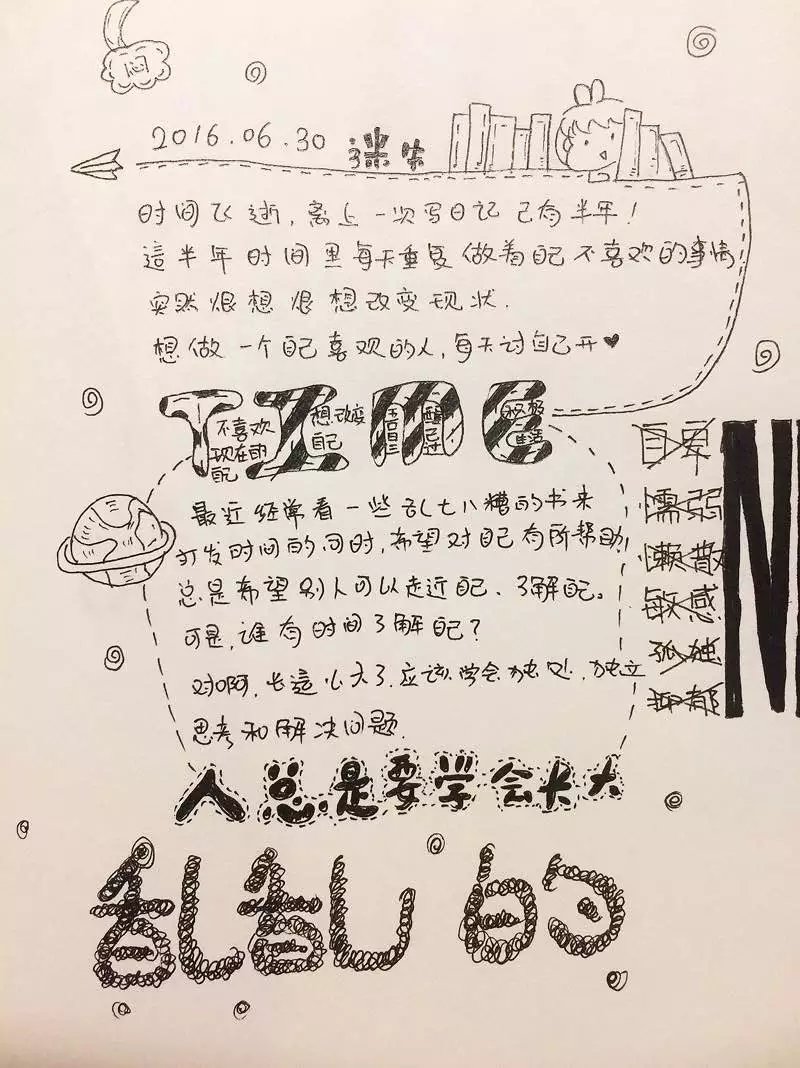 闷
2016.06.30 迷失
时间飞逝,离上一次写日记已有半年!
這半年时间里每天重复做着自己不喜欢的事情
突然很想很想改变现状.
想做一个自己喜欢的人,每天讨自己开♥
TIME
不喜欢现在的自己
想改变自己
醒已过!
积极生活
最近经常看一些乱七八糟的书来
打发时间的同时,希望对自己有所帮助,
总是希望别人可以走近自己、了解自己。
可是,谁有时间了解自己?
对啊,长這么大了,应该学会独处,独立
思考和解决问题.
人总是要学会长大
自卑
懦弱
懒散
敏感
孤独
抑郁
N
乱乱的